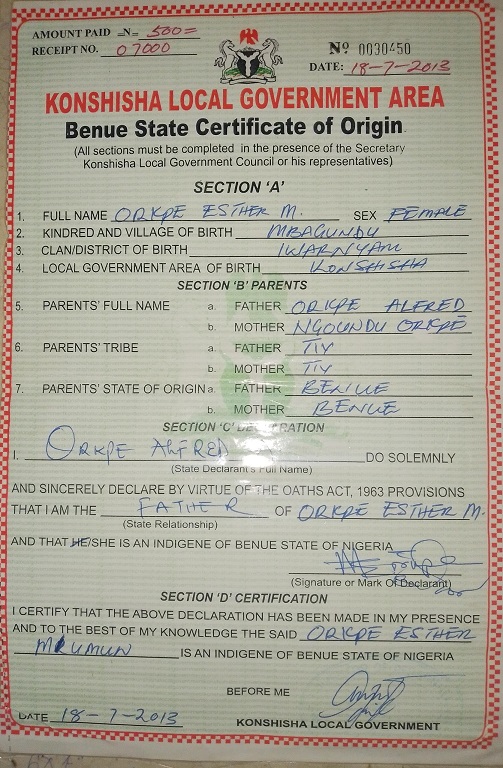 AMOUNT PAID =N= 500=
RECEIPT NO. 07000
No 0030450
DATE: 18-7-2013
KONSHISHA LOCAL GOVERNMENT AREA
Benue State Certificate of Origin
(All sections must be completed in the presence of the Secretary
Konshisha Local Government Council or his representatives)
SECTION 'A'
1. FULL NAME ORKPE ESTHER M. SEX FEMALE
2. KINDRED AND VILLAGE OF BIRTH MBAGUNDU
3. CLAN/DISTRICT OF BIRTH IWARNYAM
4. LOCAL GOVERNMENT AREA OF BIRTH KONSHISHA
SECTION 'B' PARENTS
5. PARENTS' FULL NAME a. FATHER ORKPE ALFRED
b. MOTHER NGOUNDU ORKPE
6. PARENTS' TRIBE a. FATHER TIV
b. MOTHER TIV
7. PARENTS' STATE OF ORIGIN a. FATHER BENUE
b. MOTHER BENUE
SECTION 'C' DECLARATION
I. ORKPE ALFRED DO SOLEMNLY
(State Declarant's Full Name)
AND SINCERELY DECLARE BY VIRTUE OF THE OATHS ACT, 1963 PROVISIONS
THAT I AM THE FATHER OF ORKPE ESTHER M.
(State Relationship)
AND THAT HE/SHE IS AN INDIGENE OF BENUE STATE OF NIGERIA
(Signature or Mark Of Declarant)
SECTION 'D' CERTIFICATION
I CERTIFY THAT THE ABOVE DECLARATION HAS BEEN MADE IN MY PRESENCE
AND TO THE BEST OF MY KNOWLEDGE THE SAID ORKPE ESTHER
IS AN INDIGENE OF BENUE STATE OF NIGERIA
BEFORE ME
DATE 18-7-2013 KONSHISHA LOCAL GOVERNMENT